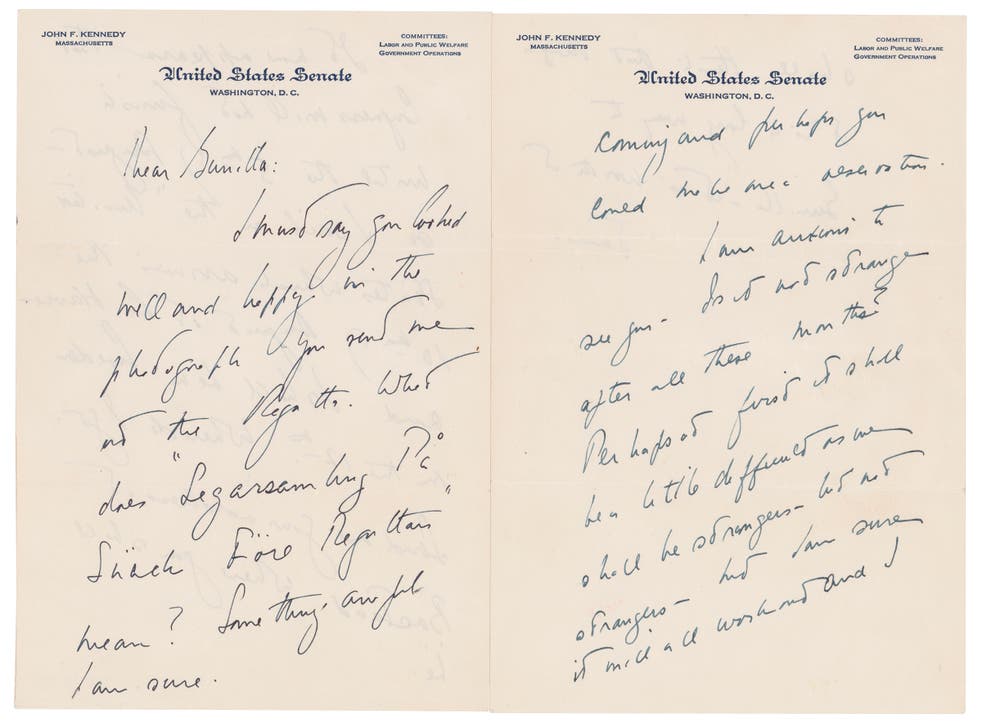 JOHN F. KENNEDY
MASSACHUSETTS
COMMITTEES:
LABOR AND PUBLIC WELFARE
GOVERNMENT OPERATIONS
United States Senate
WASHINGTON, D. C.
Dear Gunilla:
I must say you looked
well and happy in the
photograph you send me
at the Regatta. What
does "Segarsamling På
Skäck Före Regattan"
mean? Something awful
I am sure.
JOHN F. KENNEDY
MASSACHUSETTS
COMMITTEES:
LABOR AND PUBLIC WELFARE
GOVERNMENT OPERATIONS
United States Senate
WASHINGTON, D. C.
coming and perhaps you
could make me a reservation.
I am anxious to
see you - Is it not strange
after all these months?
Perhaps at first it shall
be a little difficult as we
shall be strangers - but not
strangers - but I am sure
it will all work out and I